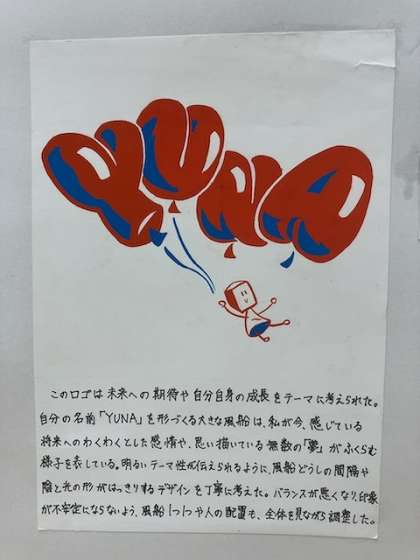 YUNA
このロゴは未来への期待や自分自身の成長をテーマに考えられた。
自分の名前「YUNA」を形づくる大きな風船は、私が今、感じている
将来へのわくわくとした感情や、思い描いている無数の「夢」がふくらむ
様子を表している。明るいテーマ性が伝えられるように、風船どうしの間隔や
陰と光の形がはっきりするデザインを丁寧に考えた。バランスが悪くなり、印象
が不安定にならないよう、風船1つ1つや人の配置も、全体を見ながら調整した。